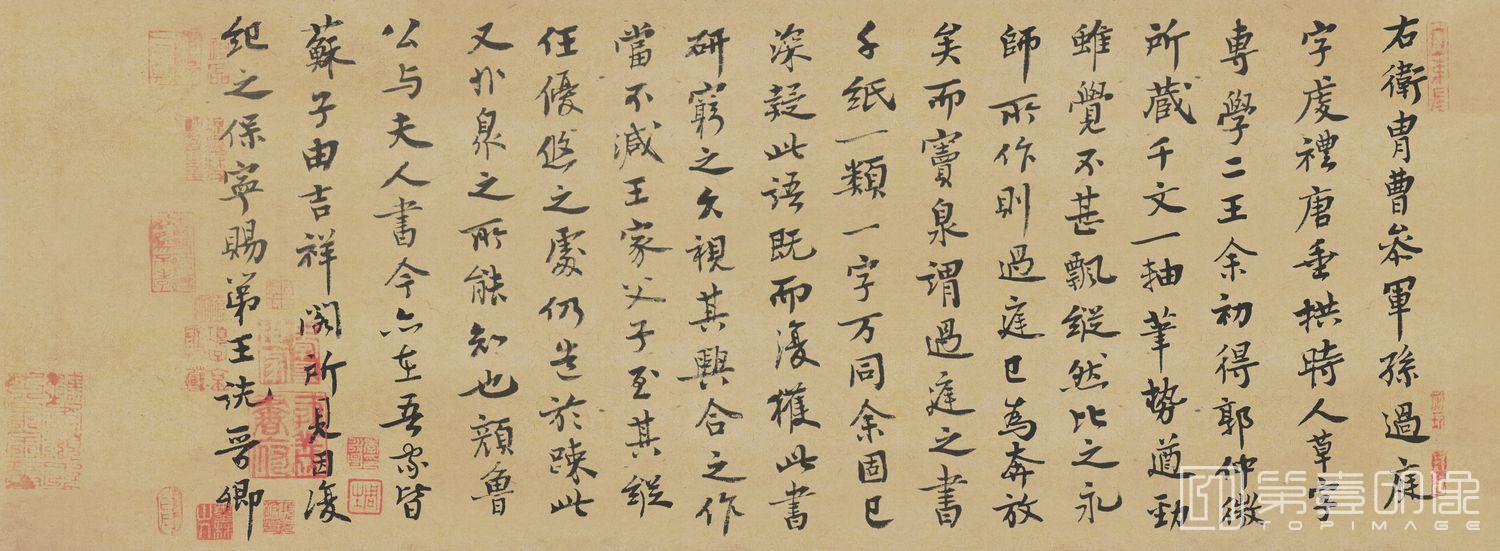 右衛胄曹叅軍孫過庭
字虔禮唐垂拱時人草字
專學二王余初得郭仲微
所蔵千文一軸筆勢遒勁
雖覺不甚飄縱然比之永
師所作則過庭已為奔放
矣而竇臮謂過庭之書
千紙一類一字万同余固已
深疑此語既而復獲此書
研窮之久視其興合之作
當不減王家父子至其縱
任優悠之處仍造於踈此
又非臮之所能知也顔魯
公与夫人書今亦在吾家皆
蘇子由吉祥閣所見因復
紀之保寧賜第王詵晋卿
第壹映象
TOPIMAGE